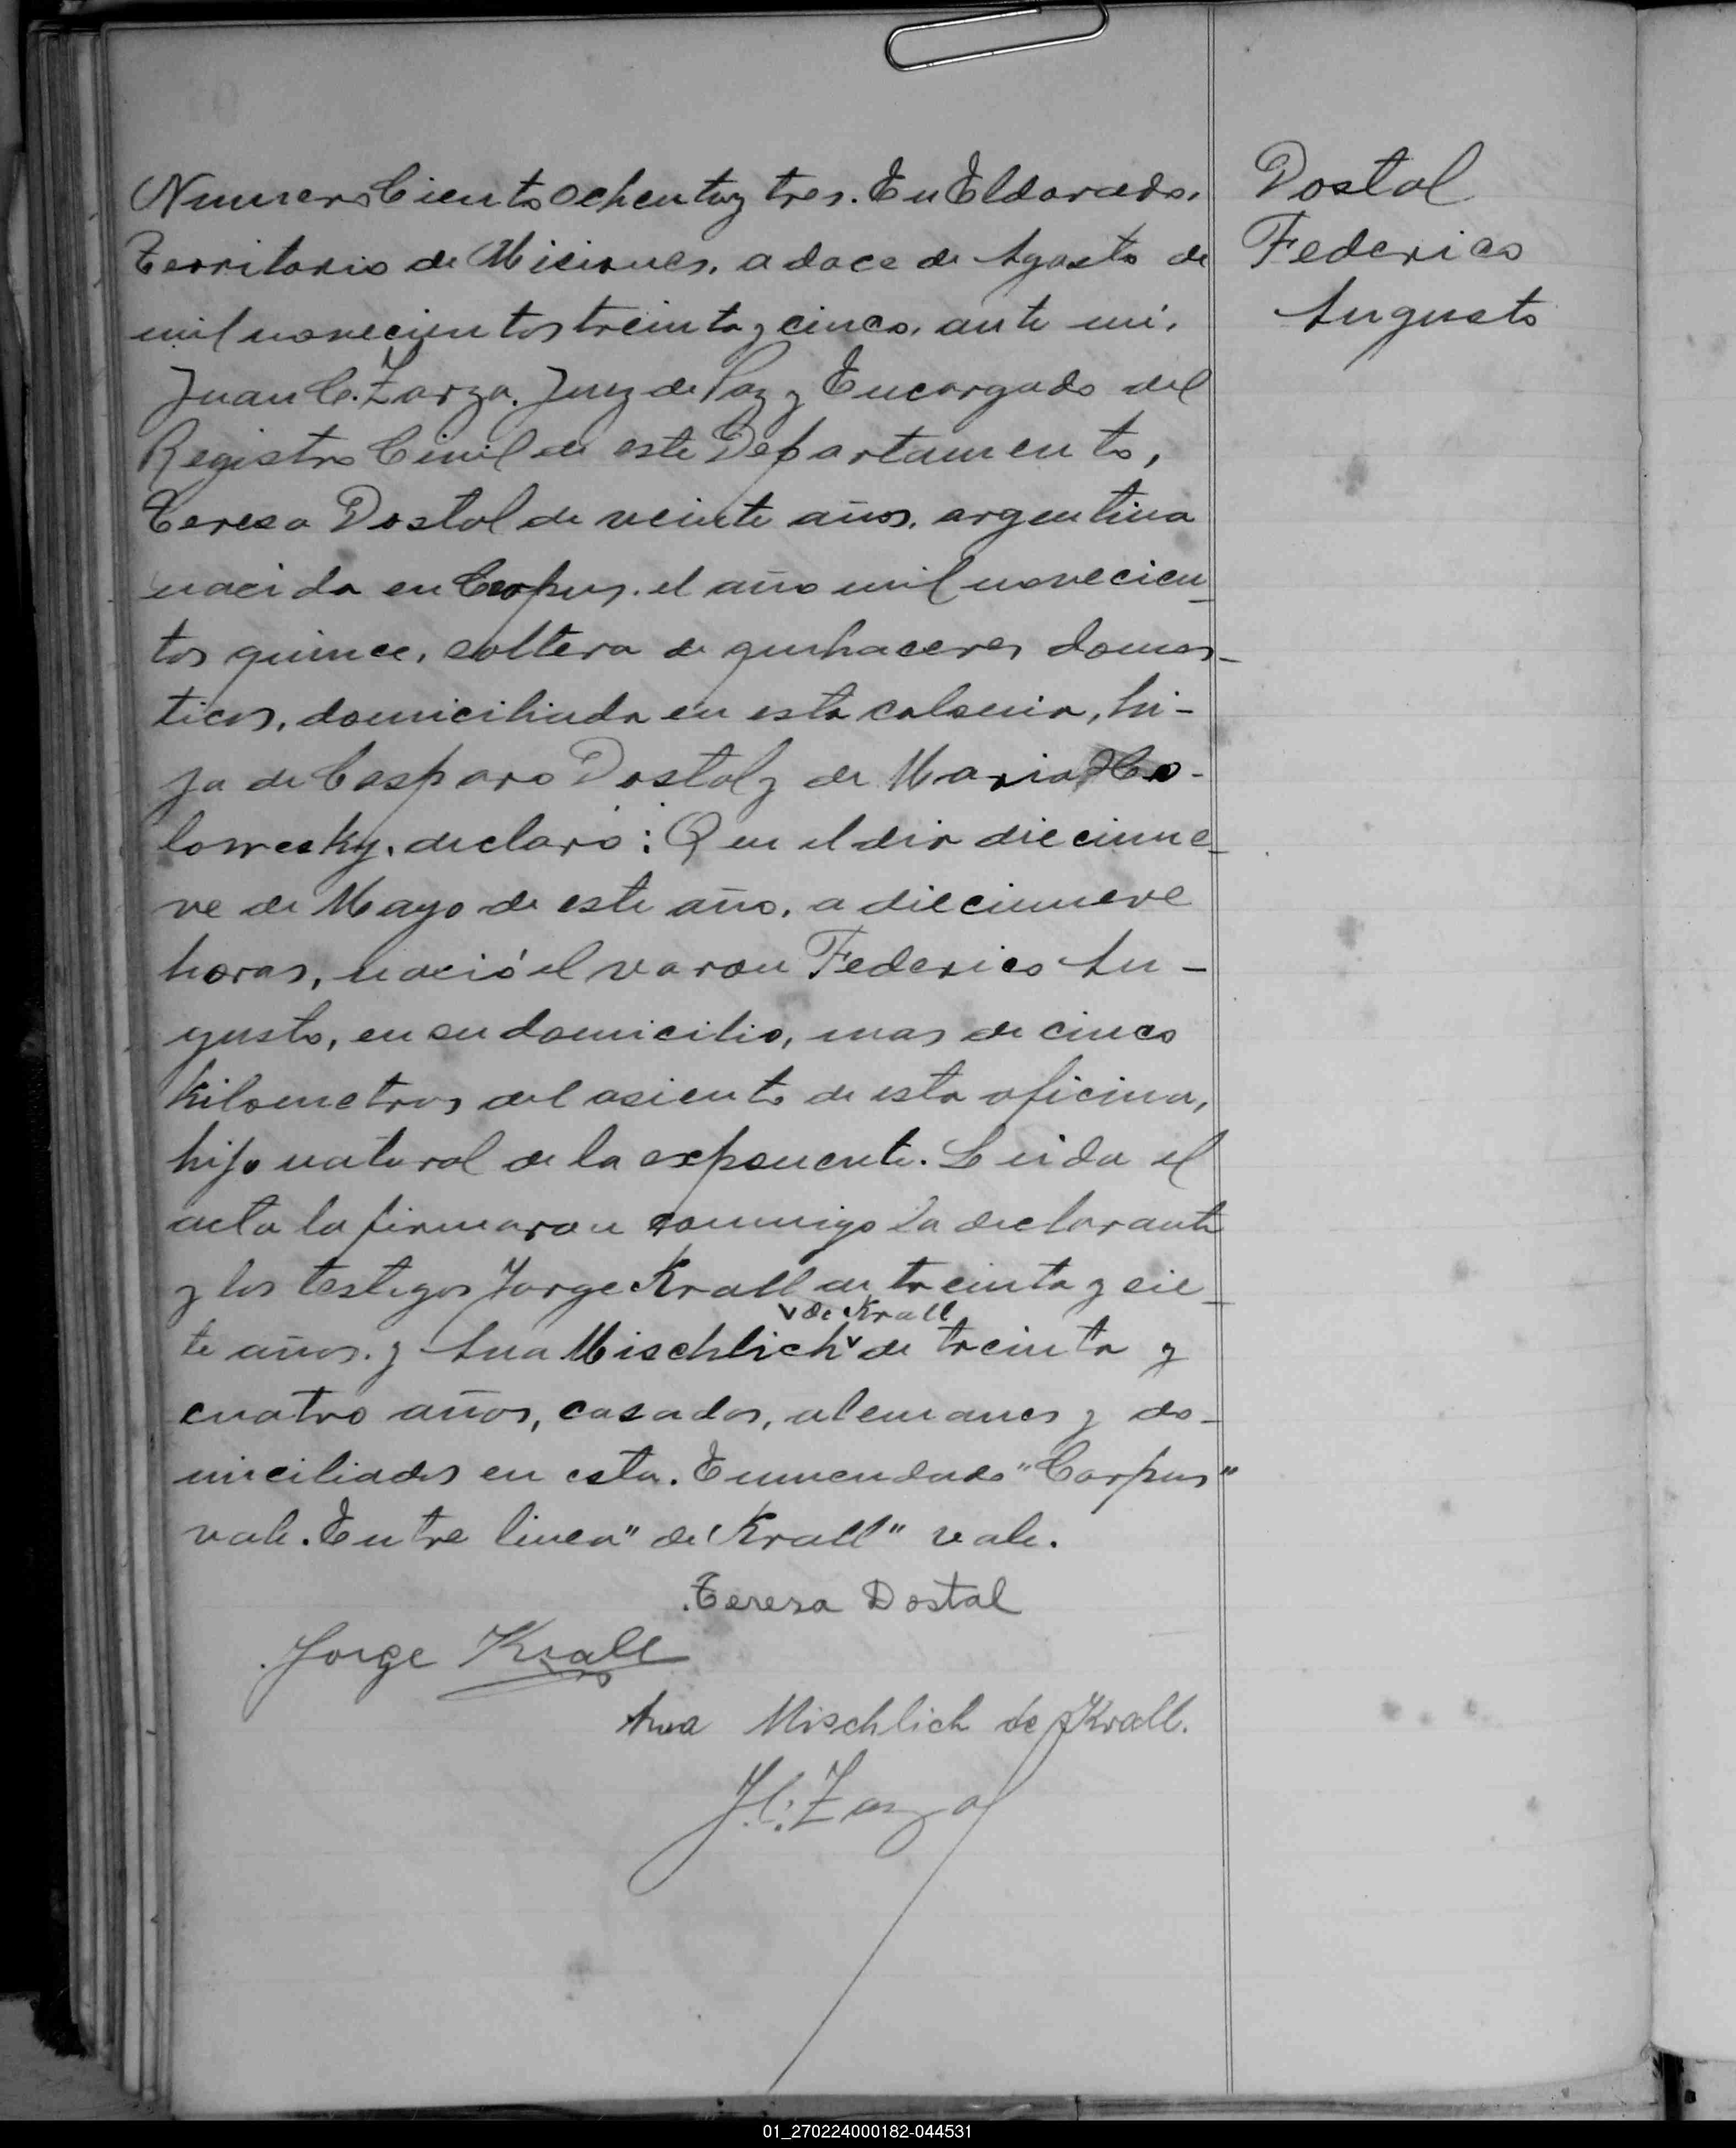 Numero Ciento ochenta y tres. En Eldorado,
Territorio de Misiones, a doce de Agosto de
mil novecientos treinta y cinco, ante mi,
Juan C. Zarza, Juez de Paz y Encargado del
Registro Civil de este Departamento,
Teresa Dostal de veinte años, argentina
nacida en Corpus, el año mil novecien-
tos quince, soltera de quehaceres domes-
ticos, domiciliada en esta colonia, hi-
ja de Casparo Dostal y de Maria
lowesky, declaró: Que el dia diecinue-
ve de Mayo de este año, a diecinueve
horas, nació el varon Federico Au-
gusto, en su domicilio, mas de cinco
kilometros del asiento de esta oficina,
hijo natural de la exponente. Leida el
acta la firmaron conmigo la declarante
y los testigos Jorge Krall de treinta y sie-
te años. y Ana Mischlich de Krall de treinta y
cuatro años, casados, alemanes y do-
miciliados en esta. Enmendado "Corpus"
vale. Entre linea "de Krall" vale.
Teresa Dostal
Jorge Krall
Ana Mischlich de Krall.
J.C. Zarza
Dostal
Federico
Augusto
01_270224000182-044531